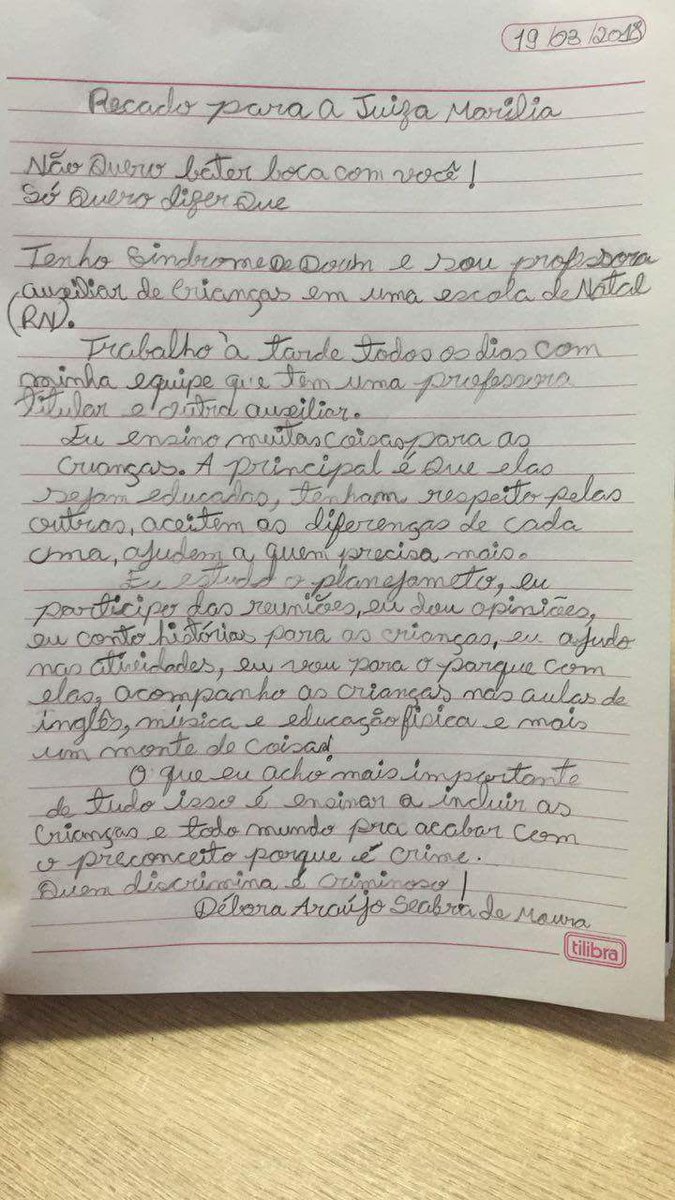 19/03/2018
Recado para a Juiza Marília
Não Quero bater boca com você!
Só Quero dizer Que
Tenho Síndrome De Down e sou professora
auxiliar de Crianças em uma escola de Natal
(RN).
Trabalho à tarde todos os dias com
minha equipe que tem uma professora
titular e outra auxiliar.
Eu ensino muitas coisas para as
crianças. A principal é Que elas
sejam educadas, tenham respeito pelas
outras, aceitem as diferenças de cada
uma, ajudem a quem precisa mais.
Eu estudo o planejameto, eu
participo das reuniões, eu dou opiniões,
eu conto histórias para as crianças, eu ajudo
nas atividades, eu vou para o parque com
elas, acompanho as crianças nas aulas de
inglês, música e educação física e mais
um monte de coisas!
O que eu acho mais importante
de tudo isso é ensinar a incluir as
crianças e todo mundo pra acabar com
o preconceito porque é crime.
Quem discrimina é criminoso!
Débora Araújo Seabra de Moura
tilibra